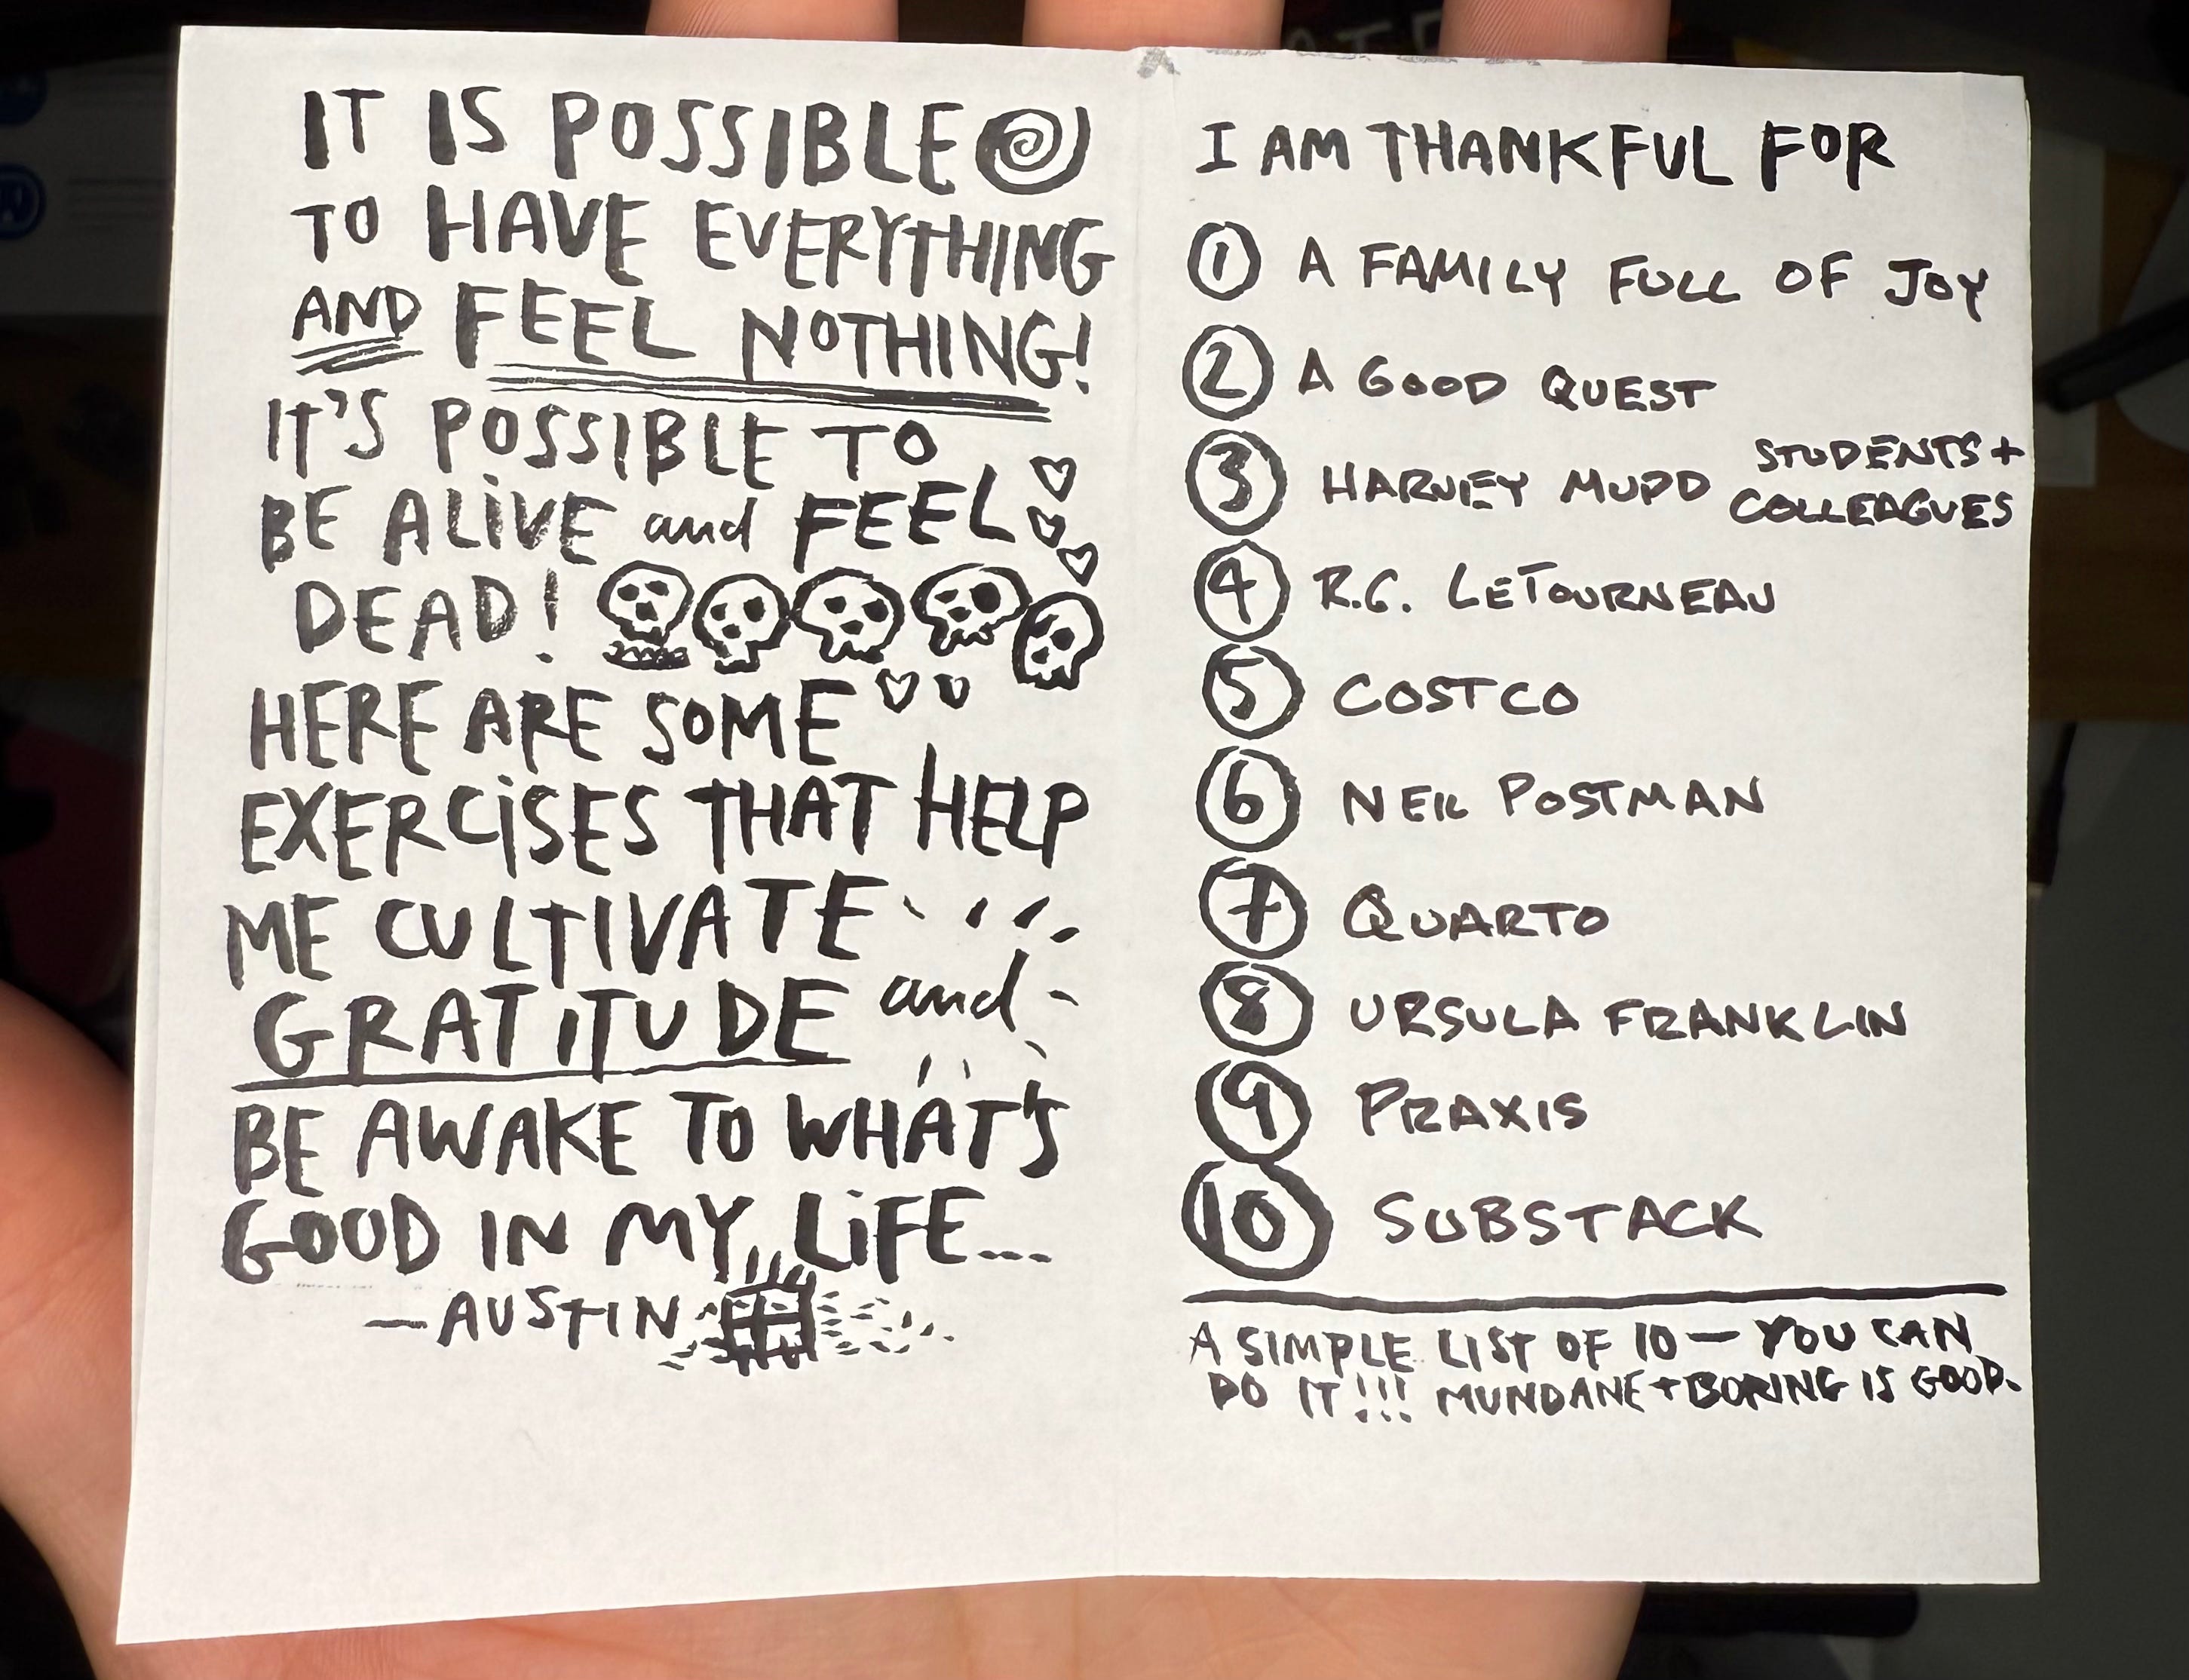 IT IS POSSIBLE
TO HAVE EVERYTHING
AND FEEL NOTHING!
IT'S POSSIBLE TO
BE ALIVE and FEEL
DEAD!
HERE ARE SOME
EXERCISES THAT HELP
ME CULTIVATE
GRATITUDE and
BE AWAKE TO WHAT'S
GOOD IN MY LIFE...
—AUSTIN
I AM THANKFUL FOR
1 A FAMILY FULL OF JOY
2 A GOOD QUEST
3 HARVEY MUDD STUDENTS +
COLLEAGUES
4 R.G. LETOURNEAU
5 COSTCO
6 NEIL POSTMAN
7 QUARTO
8 URSULA FRANKLIN
9 PRAXIS
10 SUBSTACK
A SIMPLE LIST OF 10 — YOU CAN
DO IT!!! MUNDANE + BORING IS GOOD.